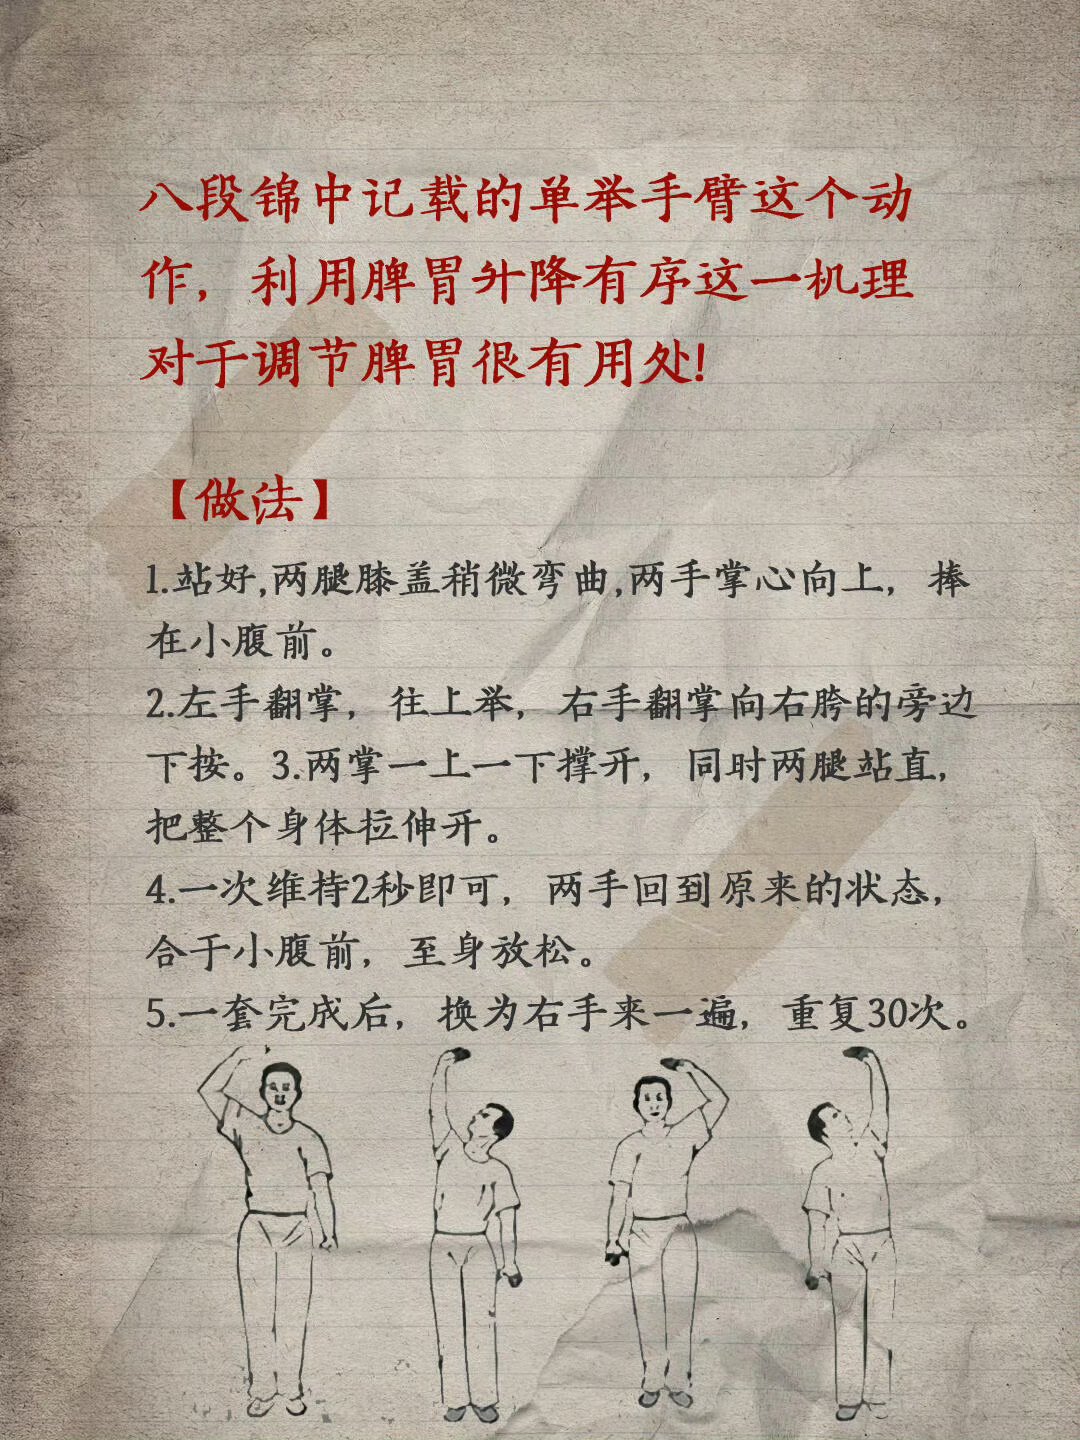 八段锦中记载的单举手臂这个动
作，利用脾胃升降有序这一机理
对于调节脾胃很有用处!
【做法】
1.站好,两腿膝盖稍微弯曲,两手掌心向上，捧
在小腹前。
2.左手翻掌，往上举，右手翻掌向右胯的旁边
下按。3.两掌一上一下撑开，同时两腿站直，
把整个身体拉伸开。
4.一次维持2秒即可，两手回到原来的状态，
合于小腹前，至身放松。
5.一套完成后，换为右手来一遍，重复30次。